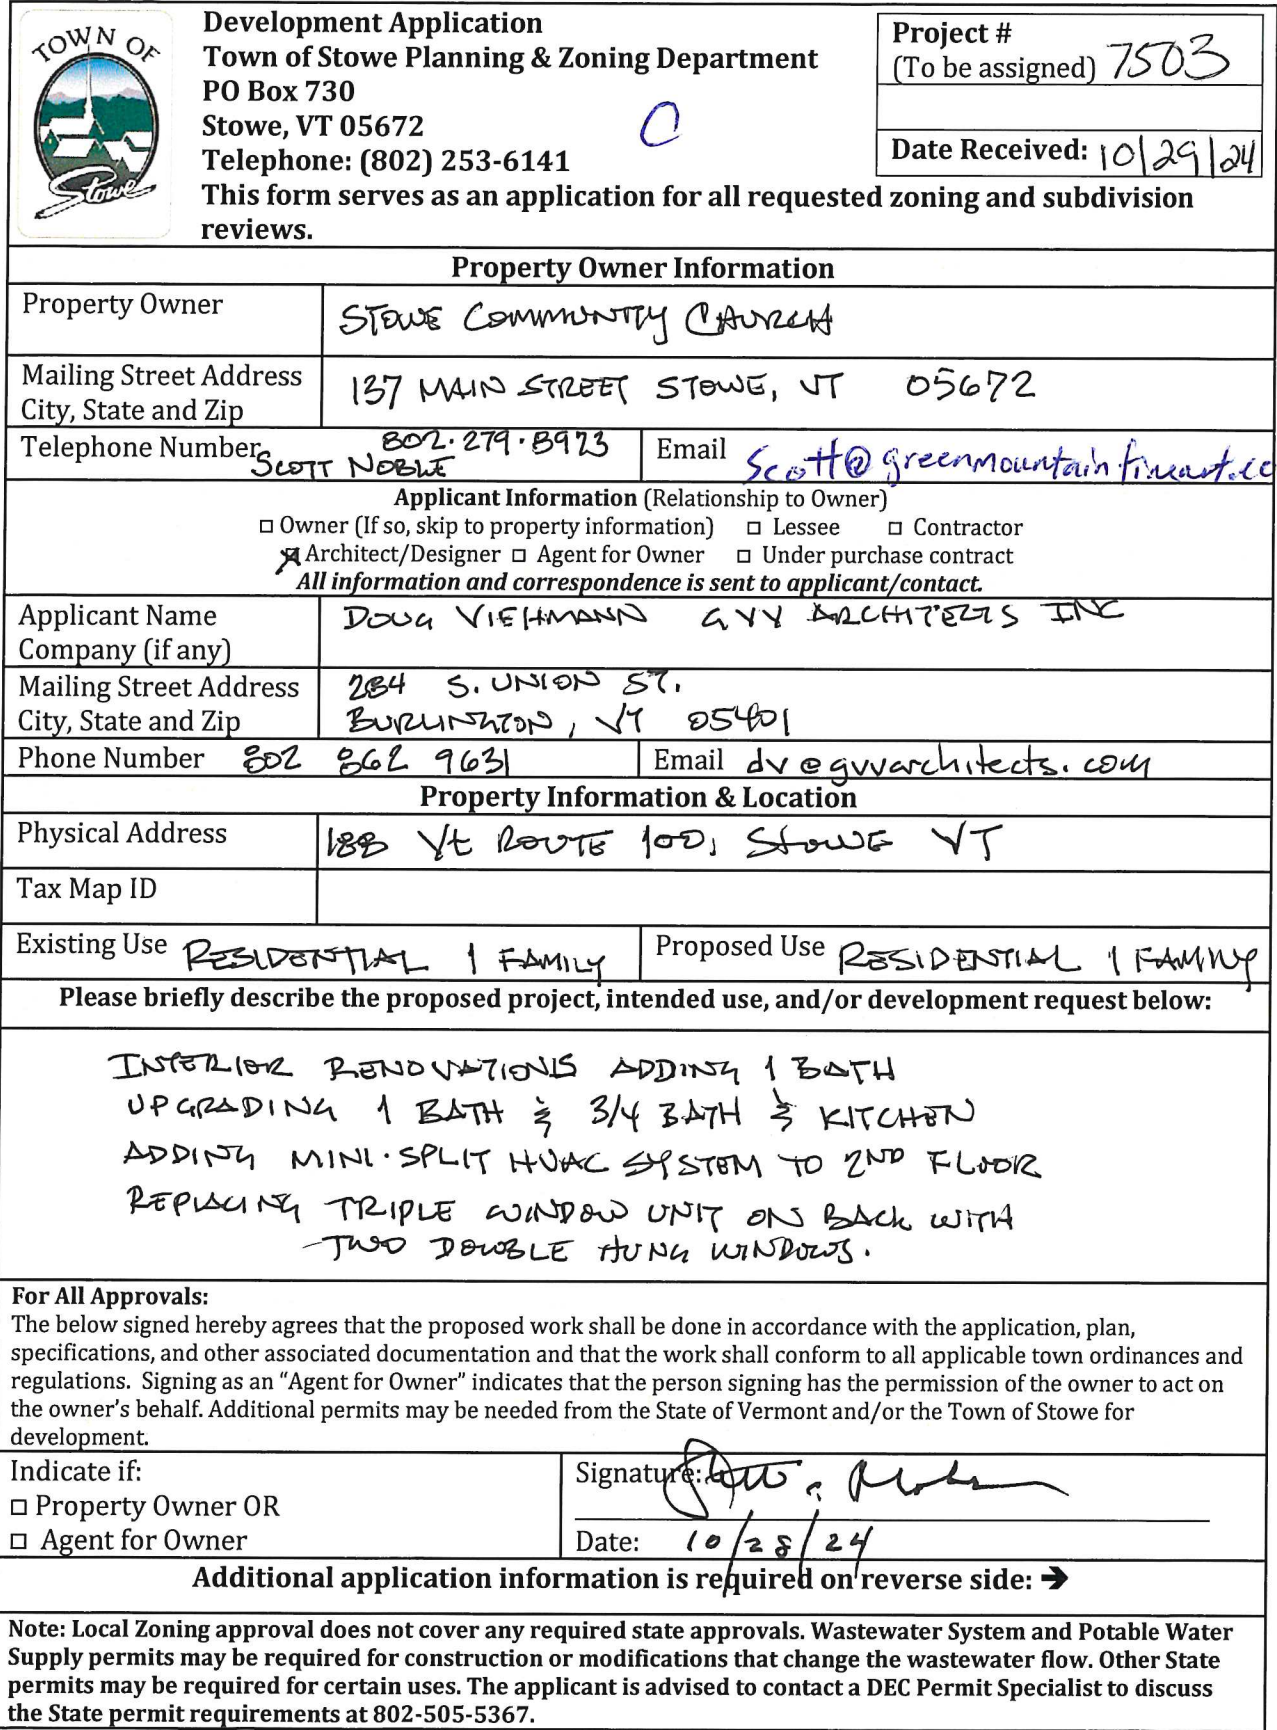 TOWN OF
Stowe
Development Application
Town of Stowe Planning & Zoning Department
PO Box 730
Stowe, VT 05672
Telephone: (802) 253-6141
C
This form serves as an application for all requested zoning and subdivision
reviews.
Project #
(To be assigned) 7503
Date Received: 10/29/24
Property Owner Information
Property Owner STOWE COMMUNITY CHURCH
Mailing Street Address
City, State and Zip
137 MAIN STREET STOWE, VT 05672
Telephone Number 802.279.8973
SCOTT NOBLE
Email Scott@greenmountainfineart.co
Applicant Information (Relationship to Owner)
□ Owner (If so, skip to property information) □ Lessee □ Contractor
☒ Architect/Designer □ Agent for Owner □ Under purchase contract
All information and correspondence is sent to applicant/contact.
Applicant Name
Company (if any)
DOUG VIEHMANN GVV ARCHITECTS INC
Mailing Street Address
City, State and Zip
284 S. UNION ST.
BURLINGTON, VT 05401
Phone Number 802 862 9631
Email dv@gvvarchitects.com
Property Information & Location
Physical Address 188 Vt ROUTE 100, STOWE VT
Tax Map ID
Existing Use RESIDENTIAL 1 FAMILY
Proposed Use RESIDENTIAL 1 FAMILY
Please briefly describe the proposed project, intended use, and/or development request below:
INTERIOR RENOVATIONS ADDING 1 BATH
UPGRADING 1 BATH & 3/4 BATH & KITCHEN
ADDING MINI-SPLIT HVAC SYSTEM TO 2ND FLOOR
REPLACING TRIPLE WINDOW UNIT ON BACK WITH
TWO DOUBLE HUNG WINDOWS.
For All Approvals:
The below signed hereby agrees that the proposed work shall be done in accordance with the application, plan,
specifications, and other associated documentation and that the work shall conform to all applicable town ordinances and
regulations. Signing as an “Agent for Owner” indicates that the person signing has the permission of the owner to act on
the owner's behalf. Additional permits may be needed from the State of Vermont and/or the Town of Stowe for
development.
Indicate if:
□ Property Owner OR
□ Agent for Owner
Signature:
Date: 10/28/24
Additional application information is required on reverse side: →
Note: Local Zoning approval does not cover any required state approvals. Wastewater System and Potable Water
Supply permits may be required for construction or modifications that change the wastewater flow. Other State
permits may be required for certain uses. The applicant is advised to contact a DEC Permit Specialist to discuss
the State permit requirements at 802-505-5367.